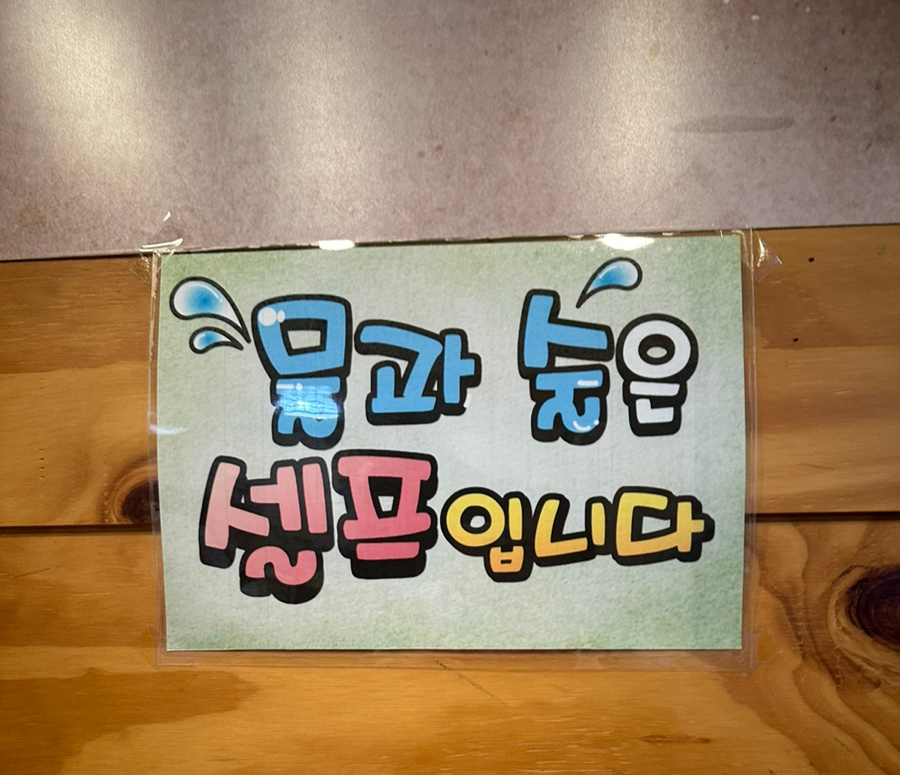 물과 술은
셀프입니다